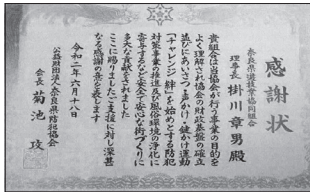 感謝状
奈良県遊技業協同組合
理事長 掛川章男殿
貴組合は当協会が行う事業の目的を
よく理解され協会の財政基盤の確立
並びにあいさつ・声かけ・鍵かけ運動
「チャレンジ絆」を始めとする防犯
対策事業の推進及び風俗環境の浄化に
寄与するなど安全で安心な街づくりに
多大な貢献をされました
ここに賜りましたご支援に対し深甚
なる感謝の意を表します
令和二年六月十八日
公益財団法人奈良県防犯協会
会長 菊池攻